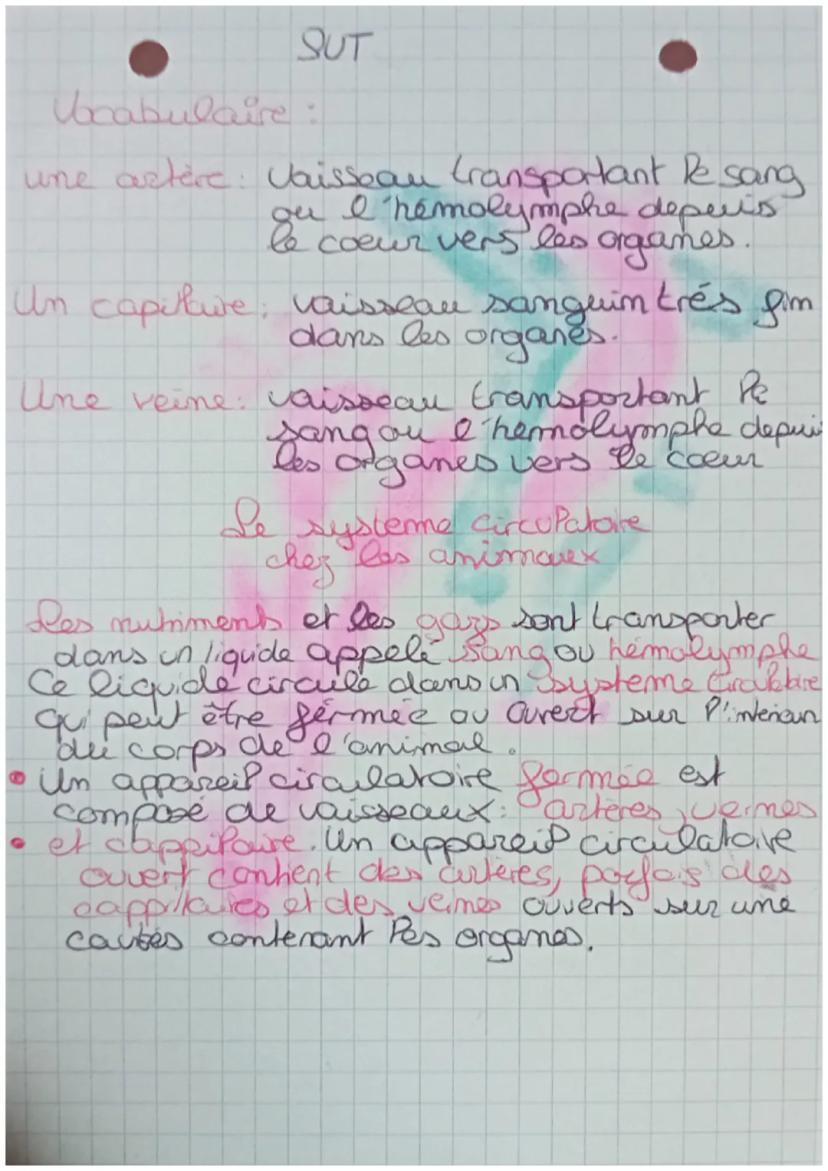 SVT
Vocabulaire :
une artère : Vaisseau transportant le sang
ou l'hémolymphe depuis
le coeur vers les organes.
Un capillaire : vaisseau sanguin trés fin
dans les organes.
Une veine : vaisseau transportant le
sang ou l'hémolymphe depuis
les organes vers le coeur
Le systeme circulatoire
chez les animaux
Les nutriments et les gazs sont transporter
dans un liquide appelé sang ou hémolymphe
Ce liquide circule dans un systeme circulatoire
qui peut être fermée ou ouvert sur l'interieur
du corps de l'animal.
• Un appareil circulatoire fermée est
composé de vaisseaux : artères, veines
• et cappilaire. Un appareil circulatoire
ouvert contient des artères, parfois des
cappilaires et des veines ouverts sur une
cavités contenant les organes.